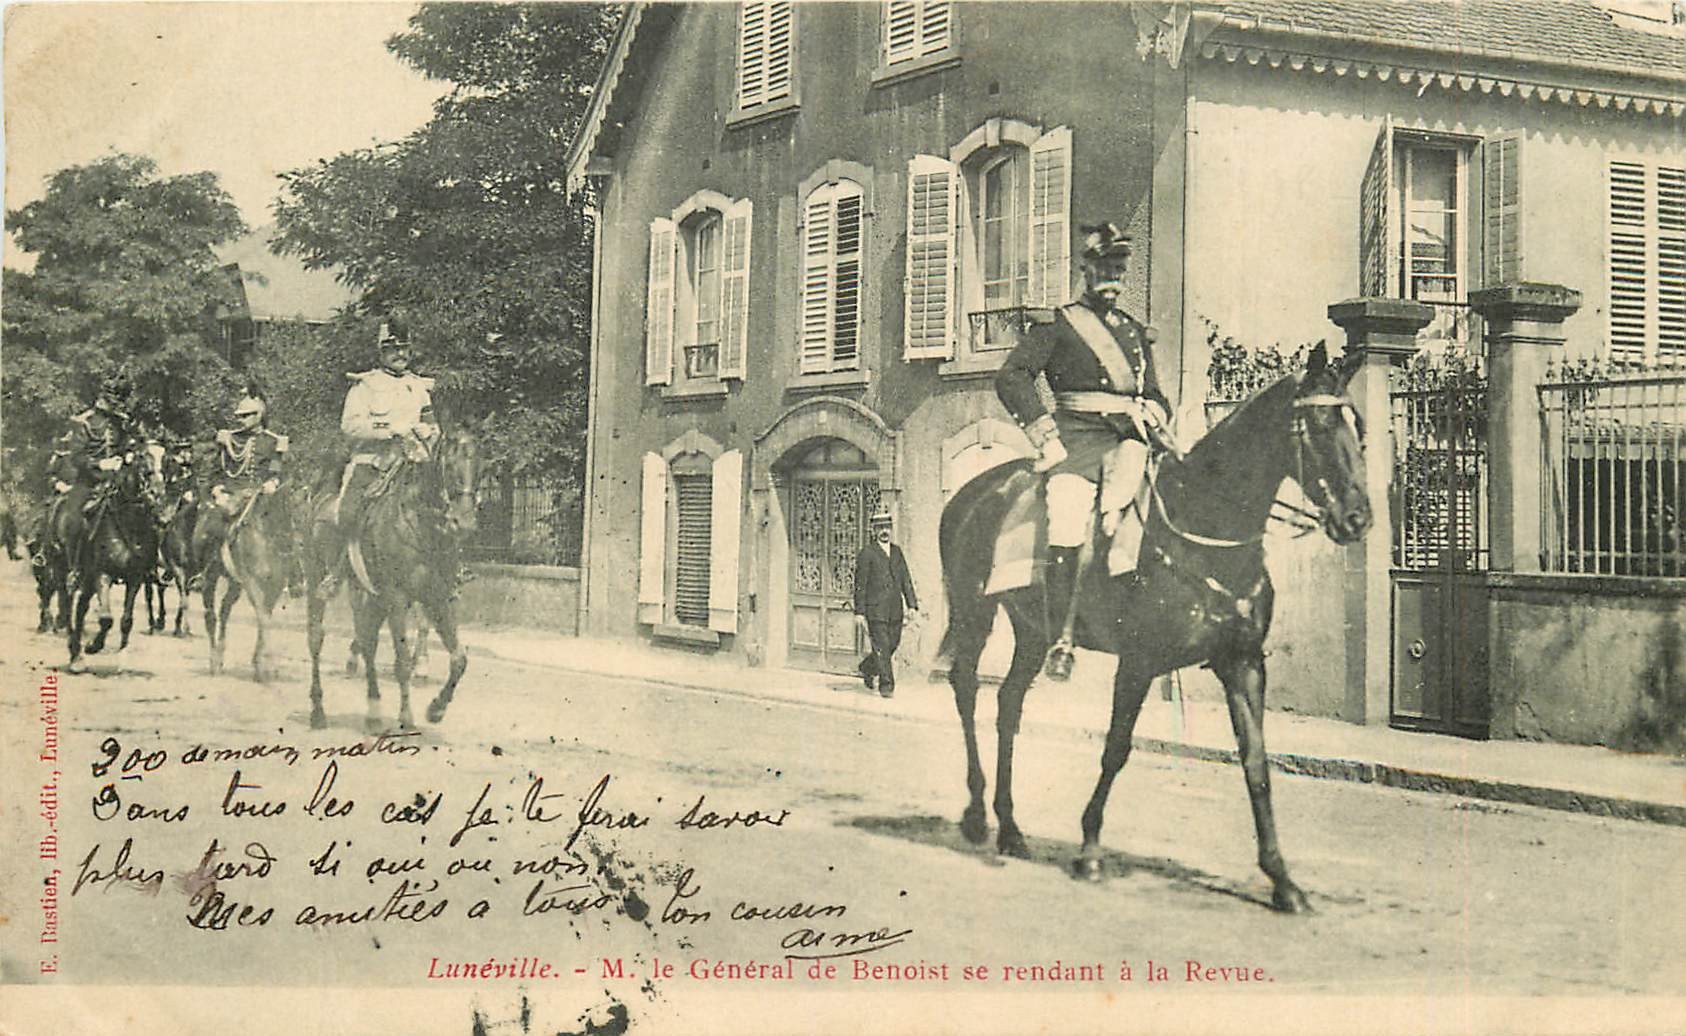 200 demain matin.
Dans tous les cas je te ferai savoir
plus tard si oui ou non.
Mes amitiés à tous ton cousin
aimé
Lunéville. - M. le Général de Benoist se rendant à la Revue.
E. Bastien, lib.-édit., Lunéville